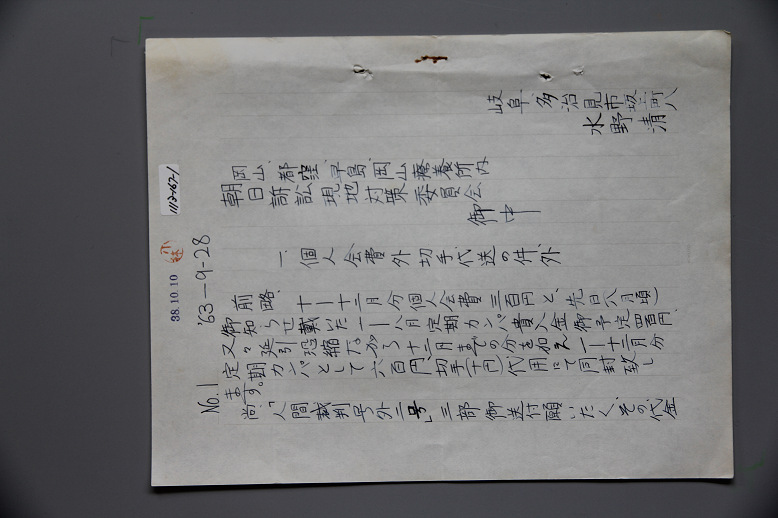 岐阜、多治見市坂上町八
水野清
岡山、都窪、早島、岡山療養所内
朝日訴訟現地対策委員会
御中
一、個人会費外切手代送の件、外
'63-9-28
38.10.10
No.1
前略、十一十二月分個人会費三百円と、先日八月頃)
御知らせ戴いた一一八月定期カンパ貴入金御予定四百円、
又々延引恐縮ながら十二月までの分を加え一一十二月分
定期カンパとして六百円、切手(十円)代用にて同封致し
ます。
尚、「人間裁判号外二号」三部御送付願いたく、その代金